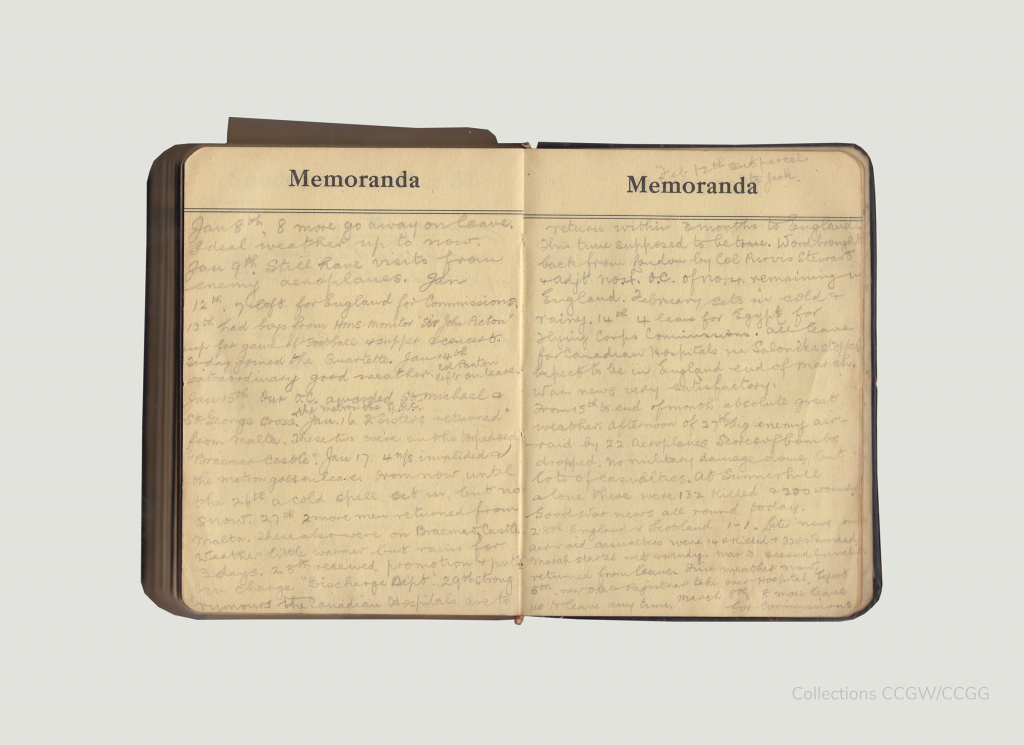 Memoranda
Jan 8th. 8 more go away on leave.
Ideal weather up to now.
Jan 9th. Still have visits from
enemy aeroplanes. Jan
12th 7 left for England for Commissions.
13th had boys from Hms Monitor "Sir John Picton"
up for game of Football & supper & concert.
To-day joined the Quartette. Jan 14th
extraordinary good weather. Col
left on leave.
Jan 15th Our O.C. awarded St Michael &
St George Cross. Jan. 16 2 Sisters returned
the matron the R.R.C.
from Malta. These two were on the torpedoed
"Braemar Castle". Jan 17. 4 n/s invalided &
the matron goes on leave. From now until
the 26th a cold spell set in, but no
snow. 27th 2 more men returned from
Malta. These also were on Braemar Castle
Weather little warmer but rains for
3 days. 28th received promotion & put
in charge "Discharge Dept". 29th strong
rumours the Canadian Hospitals are to
Feb 12th sent parcel
to Jack.
Memoranda
return within 2 months to England.
This time supposed to be true. Word brought
back from London by Col Purvis Stewart
& adjt No 4. O.C. of no. 4. remaining in
England. February sets in cold &
rainy. 14th 4 leave for Egypt for
Flying Corps Commissions. all leave
for Canadian Hospitals in Salonika stopped
Expect to be in England end of March.
War news very satisfactory.
From 15th to end of month absolute great
weather. Afternoon of 27th big enemy air-
raid by 22 Aeroplanes Scores of bombs
dropped. no military damage done, but
lots of casualties. At Summerhill
alone there were 132 killed & 200 wounded
Good War news all round today.
28th England v Scotland 1-1. Later news on
air raid casualties were 140 killed & 320 wounded
March started wet & windy. Mar 3. second bunch
returned from leave. Fine weather now.
5th. new O.C. & Registrar take our Hospital. Expect
no leave any time. March 8th 8 more leave
for Commissions
Collections CCGW/CCGG